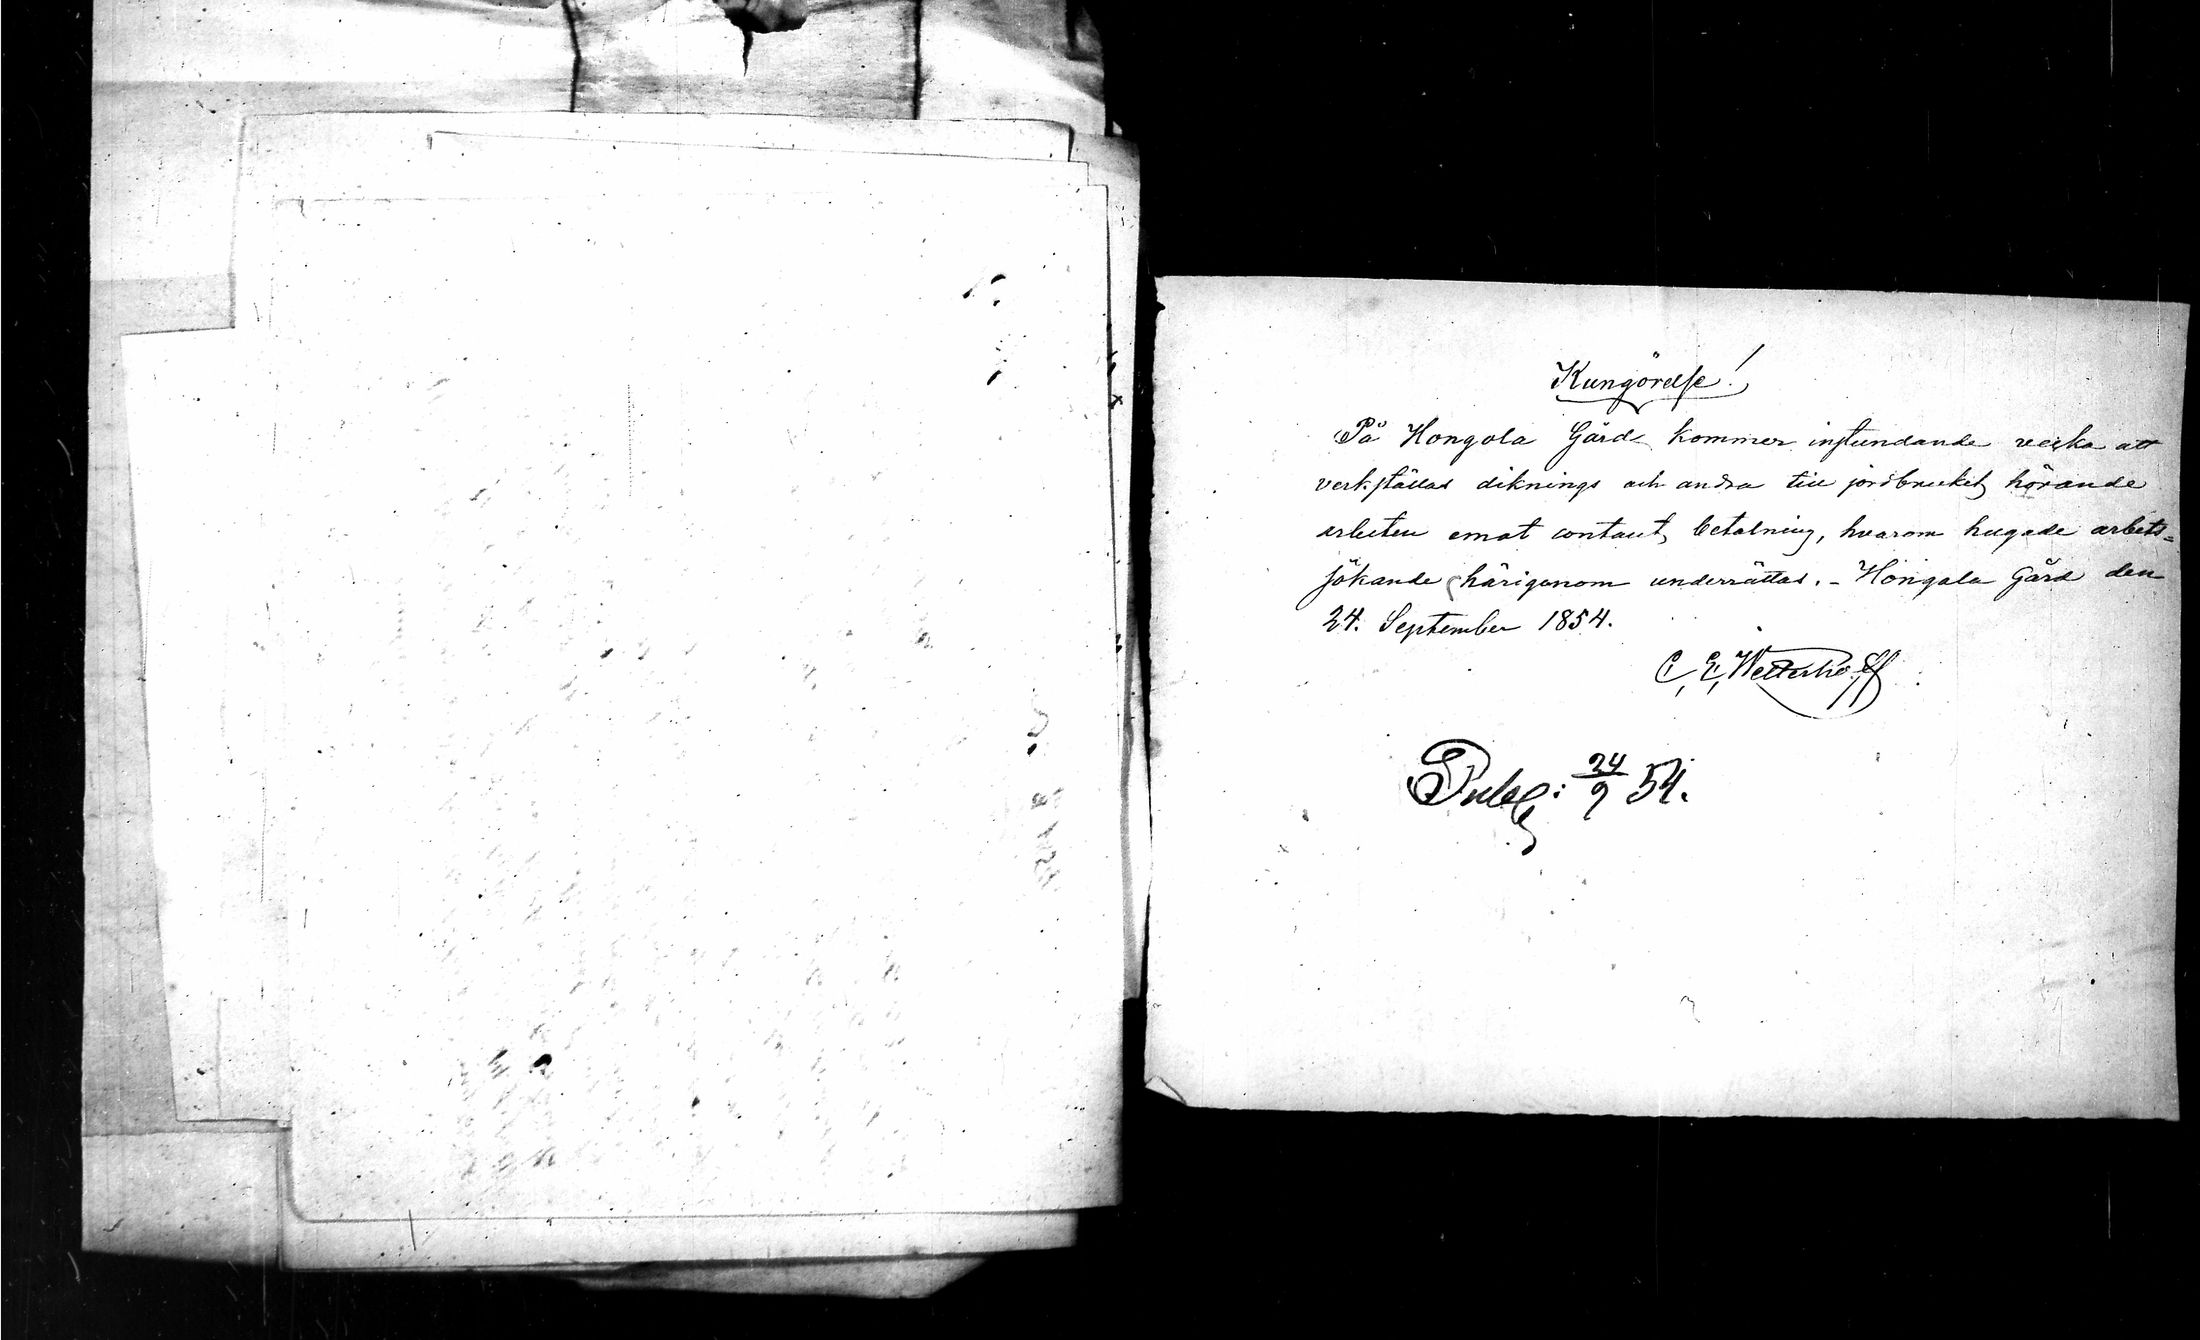 Kungörelse!
På Hongola Gård kommer instundande vecka att
verkställas diknings och andra till jordbruket hörande
arbeten emot contant betalning, hvarom hugade arbets=
sökande härigenom underrättas. - Hongola Gård den
24. September 1854.
C. E. Wetterhoff
Publ: 24/9 54.